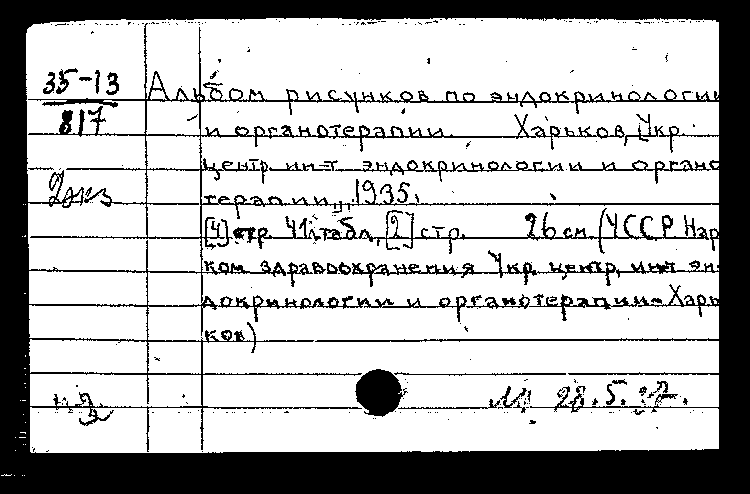 35-13
817
2 экз
Альбом рисунков по эндокринологии
и органотерапии. Харьков, Укр.
центр. ин-т эндокринологии и органо
терапии, 1935.
[4] стр. 41 л. табл., [2] стр. 26 см. (УССР. Нар
ком здравоохранения. Укр. центр. инт эн-
докринологии и органотерапии - Харь
ков)
28.5.37.